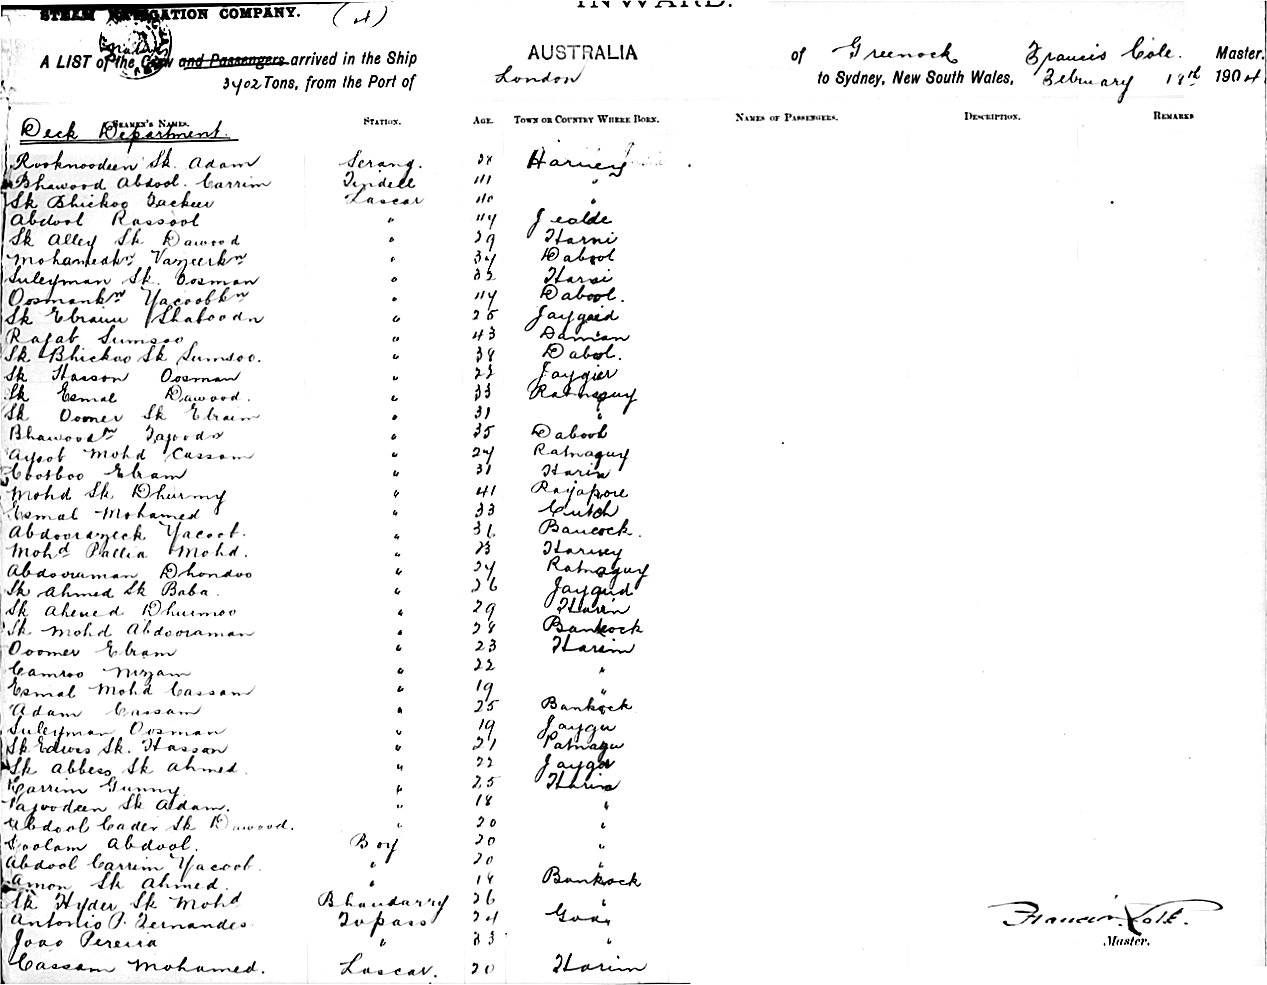 INWARD.
STEAM NAVIGATION COMPANY. (4)
A LIST of the Native Crew and Passengers arrived in the Ship AUSTRALIA of Greenock Francis Cole. Master.
3402 Tons, from the Port of London to Sydney, New South Wales, February 18th 1904
SEAMEN'S NAMES. STATION. AGE. TOWN OR COUNTRY WHERE BORN. NAMES OF PASSENGERS. DESCRIPTION. REMARKS
Deck Department.
Rooknoodeen Sk. Adam Serang. 38 Harney
Bhawood Abdool. Carrim Tindell 41 "
Sk Bhickoo Lascar 40 "
Abdool Rassool " 44
Sk Alley Sk Dawood " 29 Harni
Mohamedkn " 34 Dabool
Suleyman Sk. Oosman " 32
Oosmankn Yacoobkn " 44 Dabool.
Sk Ebraim " 25
Rajab Sumsoo " 43
Sk Bhickoo Sk Sumsoo. " 38 Dabol.
Sk Hasson Oosman " 22 Jaygier
Sk Esmal Dawood. " 33
Sk Oomer Sk Ebraim " 31 "
" 35 Dabool
Ayoob Mohd Cassam " 24 Ratnaguy
Ebram " 31 Harin
Mohd Sk Dhurmy " 41 Rajapore
Esmal Mohamed " 33 Cutch
Yacoob. " 36 Bancock.
Mohd Pallia Mohd. " 23 Harney
Abdooraman Dhondoo " 24 Ratnaguy
Sk Ahmed Sk Baba. " 26
Sk Ahmed Dhurmoo " 29 Harin
Sk Mohd Abdooraman " 28 Bankock
Oomer Ebram " 23 Harim
Camroo " 22 "
Esmal Mohd Cassam " 19 "
Adam Cassam " 25 Bankock
Suleyman Oosman " 19
Sk Edroos Sk. Hassan " 21
Sk Abbess Sk Ahmed. " 22
Carrim Gunny " 25 Harin
Sk Adam. " 18 "
Abdool Cader Sk Dawood. " 20 "
Goolam Abdool. Boy 20 "
Abdool Carrim Yacoob. " 20 "
Amon Sk Ahmed. " 18 Bankock
Sk Hyder Sk Mohd Bhandarry 26 "
Antonio P. Fernandes Topass 24 Goa
Joao Pereira " 33 "
Cassam Mohamed. Lascar. 20 Harim
Francis Cole.
Master.